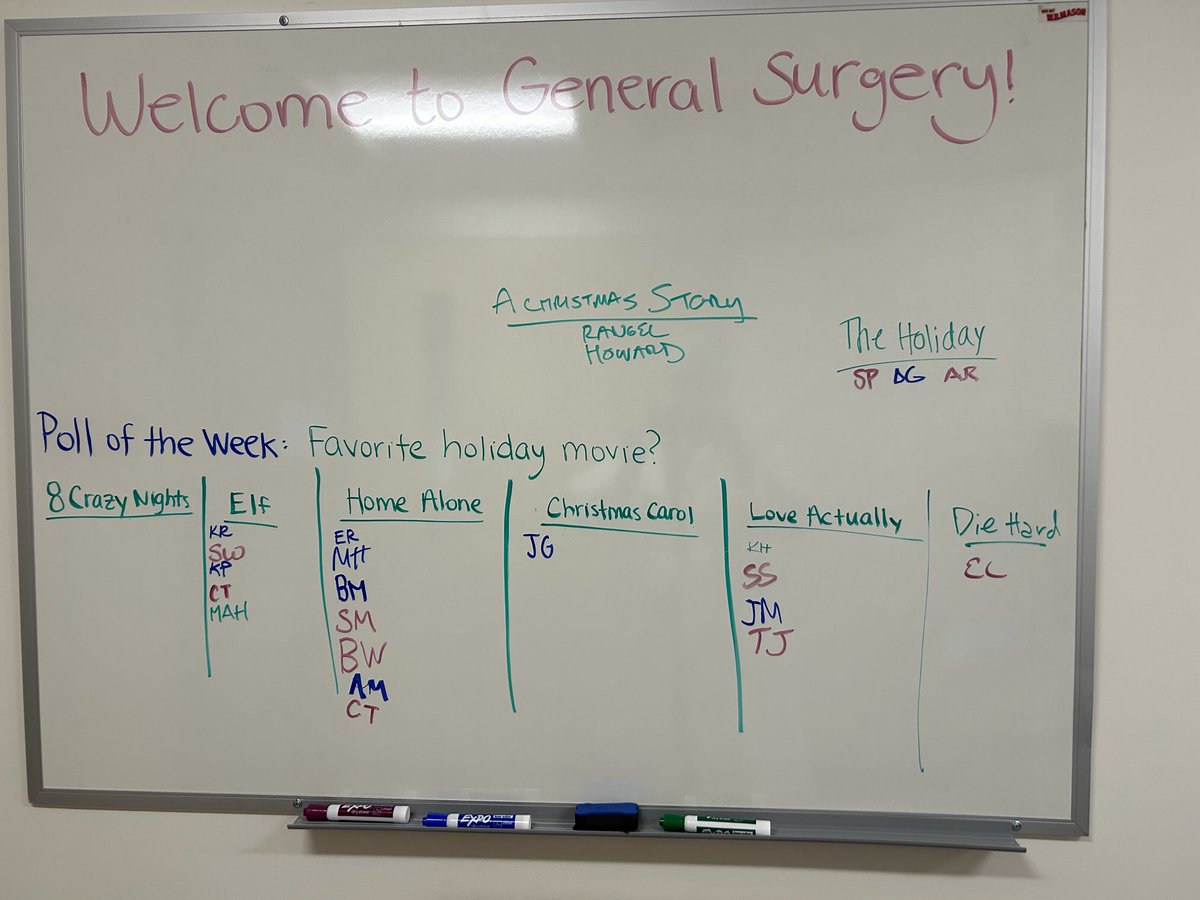 W.B.MASON
Welcome to General Surgery!
A CHRISTMAS STORY
RANGEL
HOWARD
The Holiday
SP DG AR
Poll of the Week: Favorite holiday movie?
8 Crazy Nights
Elf
KR
SW
KP
CT
MAH
Home Alone
ER
MH
BM
SM
BW
AM
CT
Christmas Carol
JG
Love Actually
KH
SS
JM
TJ
Die Hard
EC
EXPO
EXPO
EXPO